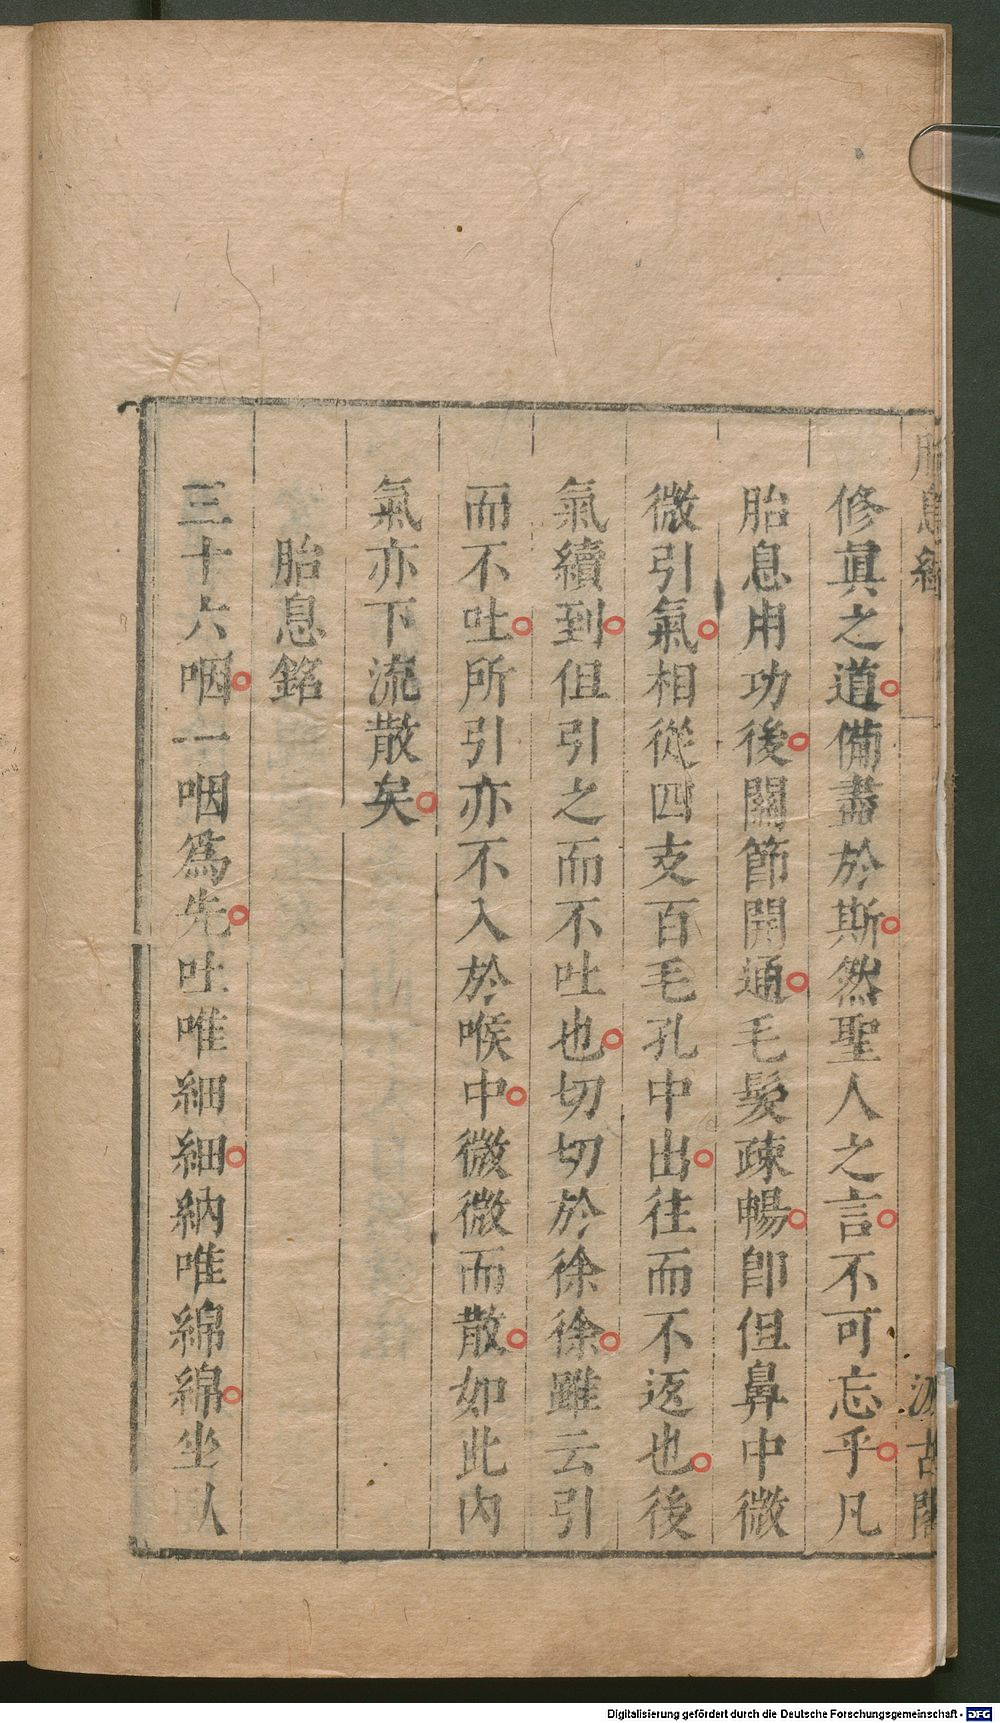 胎息經 一 汲古閣
修眞之道備盡於斯然聖人之言不可忘乎凡
胎息用功後關節開通毛髮疎暢卽但鼻中微
微引氣相從四支百毛孔中出往而不返也後
氣續到但引之而不吐也切切於徐徐雖云引
而不吐所引亦不入於喉中微微而散如此內
氣亦下流散矣
胎息銘
三十六咽一咽爲先吐唯細細納唯綿綿坐臥
Digitalisierung gefördert durch die Deutsche Forschungsgemeinschaft - DFG